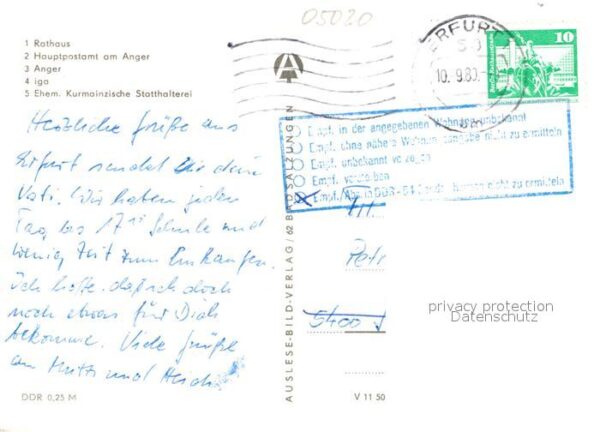 05020
1 Rathaus
2 Hauptpostamt am Anger
3 Anger
4 iga
5 Ehem. Kurmainzische Statthalterei
ERFURT
10. 9.80.
10
Herzliche Grüße aus
Erfurt sendet dir dein
Vati. Wir haben jeden
Tag bis 17 Schule und
wenig Zeit zum Einkaufen.
Ich hoffe, daß ich doch
noch etwas für Dich
bekomme. Viele Grüße
an Mutti und
Empf. in der angegebenen Wohnung unbekannt
Empf. ohne nähere Wohnungsangabe nicht zu ermitteln
Empf. unbekannt verzogen
Empf. verstorben
Empf./Abs. in DDR - 64 nicht zu ermitteln
Petr
5400
privacy protection
Datenschutz
AUSLESE-BILD-VERLAG / 62 BAD SALZUNGEN
DDR 0,25 M
V 11 50